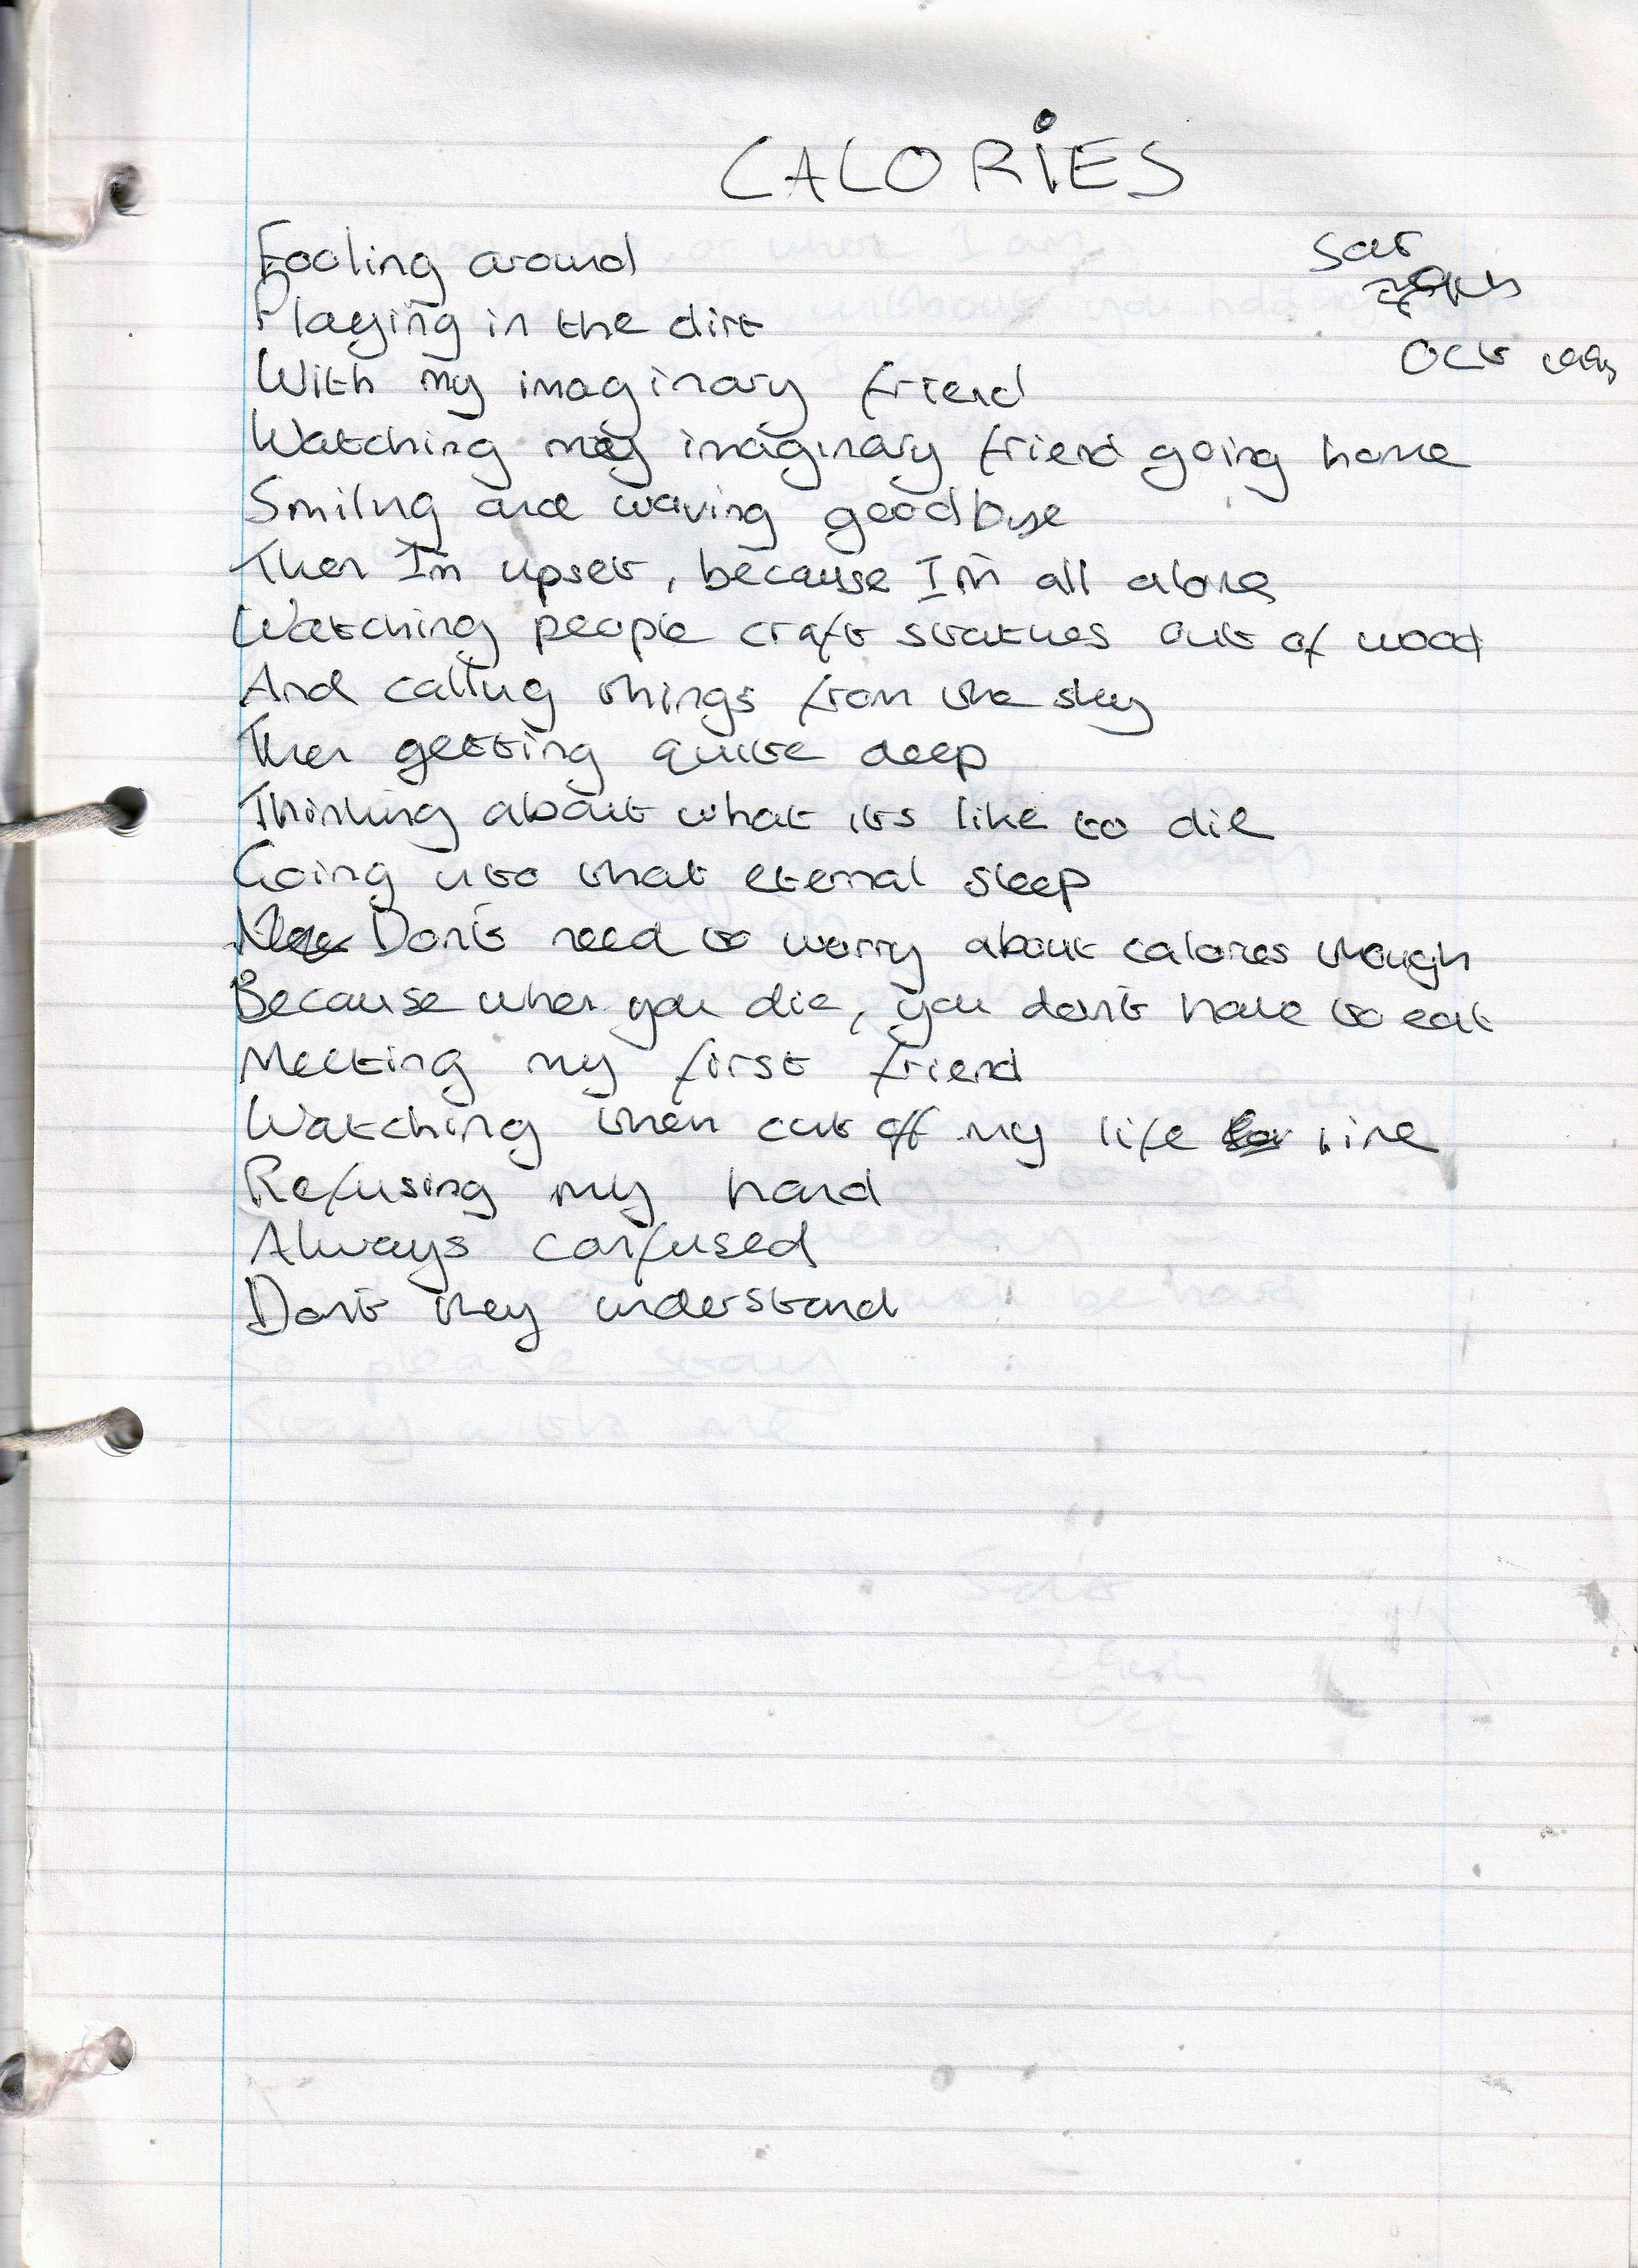 CALORIES
Fooling around
Playing in the dirt
With my imaginary friend
Watching my imaginary friend going home
Smiling and waving goodbye
Then I'm upset, because I'm all alone
Watching people craft statues out of wood
And calling things from the sky
Then getting quite deep
Thinking about what its like to die
Going into that eternal sleep
Don't need to worry about calories though
Because when you die, you don't have to eat
Meeting my first friend
Watching them cut off my life line
Refusing my hand
Always confused
Don't they understand
Sat
Oct